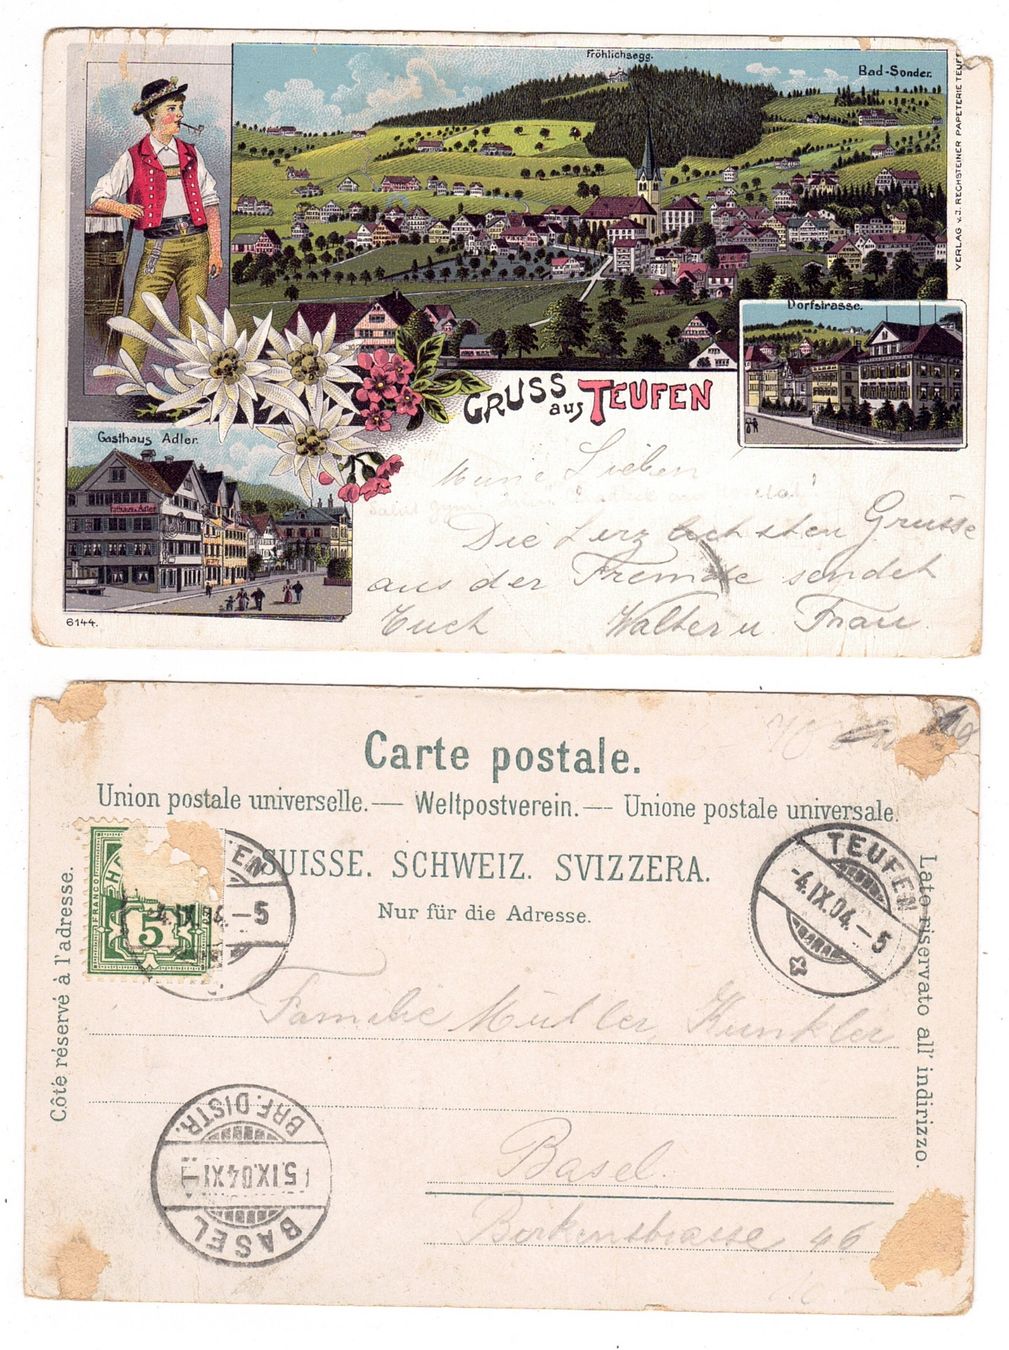 Fröhlichsegg.
Bad-Sonder.
VERLAG v. J. RECHSTEINER PAPETERIE TEUF
Dorfstrasse.
GRUSS aus TEUFEN
Gasthaus Adler.
Meine Lieben!
Die herzlichsten Grüsse
aus der Fremde sendet
Euch Walter u. Frau.
6144.
Carte postale.
Union postale universelle. — Weltpostverein. — Unione postale universale.
SUISSE. SCHWEIZ. SVIZZERA.
Nur für die Adresse.
Côté réservé à l'adresse.
Lato riservato all' indirizzo.
FRANCO
5
EN
4.IX.04.-5
TEUFEN
-4.IX.04.-5
Familie Müller, Kunkler
BRF. DISTR.
5.IX.04 XI
BASEL
Basel.
Birkenstrasse 46